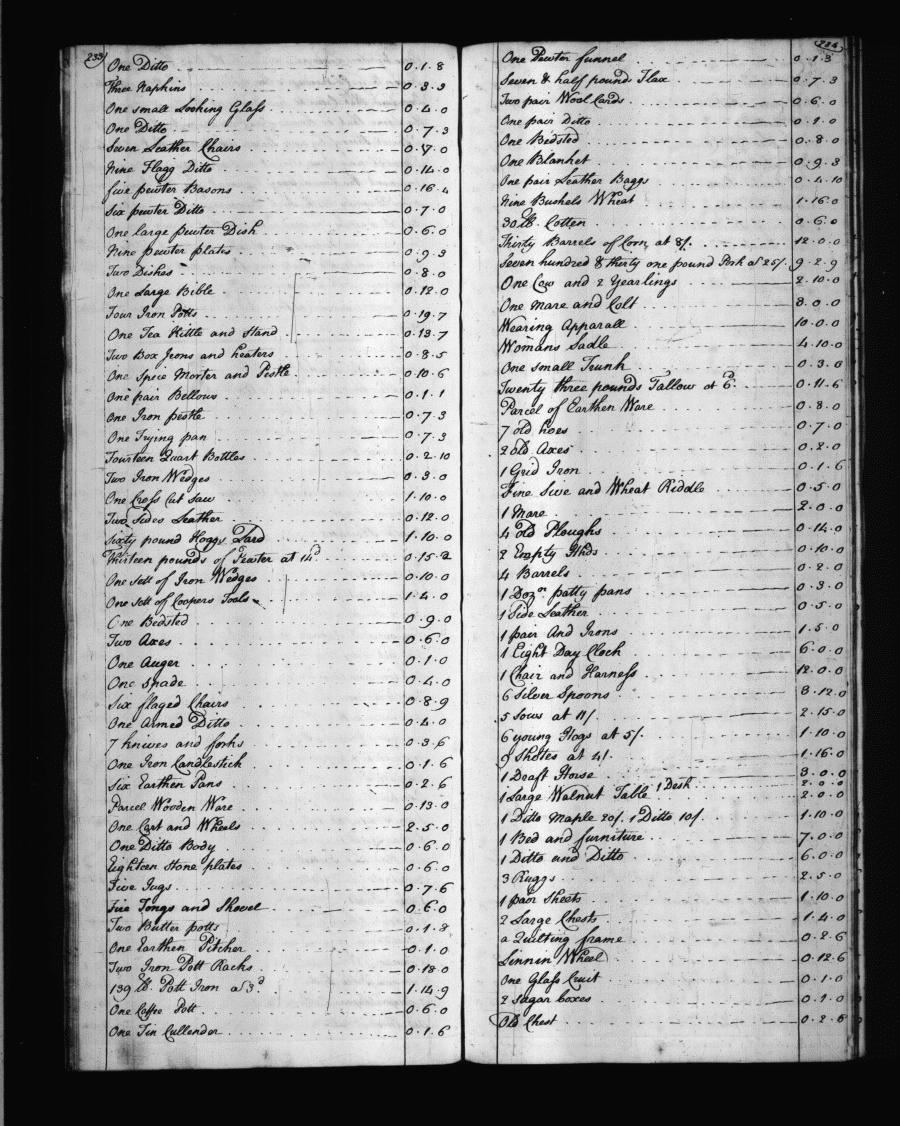 233
One Ditto 0.1.8
Three Napkins 0.3.9
One small Looking Glass 0.4.0
One Ditto 0.7.3
Seven Leather Chairs 0.17.0
Nine Flagg Ditto 0.14.0
five pewter Basons 0.16.4
Six pewter Ditto 0.7.0
One large pewter Dish 0.6.0
Nine pewter plates 0.9.3
Two Dishes 0.8.0
One Large Bible 0.12.0
Four Iron Potts 0.19.7
One Tea Kittle and Stand 0.13.7
Two Box Irons and heaters 0.8.5
One Spice Morter and Pestle 0.10.6
One pair Bellows 0.1.1
One Iron pestle 0.7.3
One Frying pan 0.7.3
Fourteen Quart Bottles 0.2.10
Two Iron Wedges 0.3.0
One Cross Cut Saw 1.10.0
Two Sides Leather 0.12.0
Sixty pound Hoggs Lard 1.10.0
Thirteen pounds of Feather at 14d 0.15.2
One Sett of Iron Wedges 0.10.0
One Sett of Coopers Tools 1.4.0
One Bedsted 0.9.0
Two Axes 0.6.0
One Auger 0.1.0
One spade 0.4.0
Six flaged Chairs 0.8.9
One Armed Ditto 0.4.0
7 knives and forks 0.3.6
One Iron Candlestick 0.1.6
Six Earthen Pans 0.2.6
Parcel Wooden Ware 0.13.0
One Cart and Wheels 2.5.0
One Ditto Body 0.6.0
Eighteen Stone plates 0.6.0
Five Jugs 0.7.6
Fire Tongs and Shovel 0.6.0
Two Butter potts 0.1.8
One Earthen Pitcher 0.1.0
Two Iron Pott Racks 0.18.0
139 lb. Pott Iron a 3d 1.14.9
One Coffee Pott 0.6.0
One Tin Cullender 0.1.6
234
One Pewter funnel 0.1.3
Seven & half pounds Flax 0.7.3
Two pair Wool Cards 0.6.0
One pair Ditto 0.1.0
One Bedsted 0.8.0
One Blanket 0.9.3
One pair Leather Baggs 0.4.10
Nine Bushels Wheat 1.16.0
30 lb. Cotten 0.6.0
Thirty Barrels of Corn, at 8/. 12.0.0
Seven hundred & thirty one pound Pork at 25/. 9.2.9
One Cow and 2 Yearlings 2.10.0
One Mare and Colt 8.0.0
Wearing Apparall 10.0.0
Womans Sadle 4.10.0
One small Trunk 0.3.6
Twenty three pounds Tallow at 6d. 0.11.6
Parcel of Earthen Ware 0.8.0
7 old hoes 0.7.0
2 old Axes 0.2.0
1 Grid Iron 0.1.6
Fine Sive and Wheat Riddle 0.5.0
1 Mare 2.0.0
4 Old Ploughs 0.14.0
2 Empty Hhds 0.10.0
4 Barrels 0.2.0
1 Dozn. patty pans 0.3.0
1 Side Leather 0.5.0
1 pair And Irons 1.5.0
1 Eight Day Clock 6.0.0
1 Chair and Harness 12.0.0
6 Silver Spoons 3.12.0
5 Sows at 11/ 2.15.0
6 young Hogs at 5/. 1.10.0
9 Shotes at 4/. 1.16.0
1 Draft Horse 3.0.0
1 Large Walnut Table 1 Desk 2.0.0 2.0.0
1 Ditto Maple 20/. 1 Ditto 10/. 1.10.0
1 Bed and furniture 7.0.0
1 Ditto and Ditto 6.0.0
3 Ruggs 2.5.0
1 pair Sheets 1.10.0
2 Large Chests 1.4.0
a Quilting frame 0.2.6
Linnin Wheel 0.12.6
One Glass Cruit 0.1.0
2 sugar boxes 0.1.0
Old Chest 0.2.6